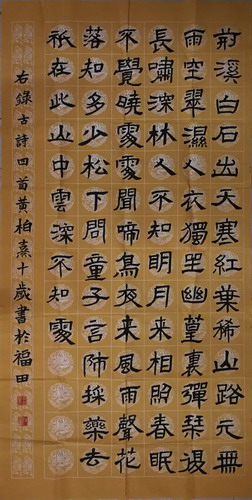 荆溪白石出天寒紅葉稀山路元無
雨空翠濕人衣獨坐幽篁裏彈琴復
長嘯深林人不知明月來相照春眠
不覺曉處處聞啼鳥夜來風雨聲花
落知多少松下問童子言師採藥去
祇在此山中雲深不知處
右錄古詩四首黃柏熹十歲書於福田